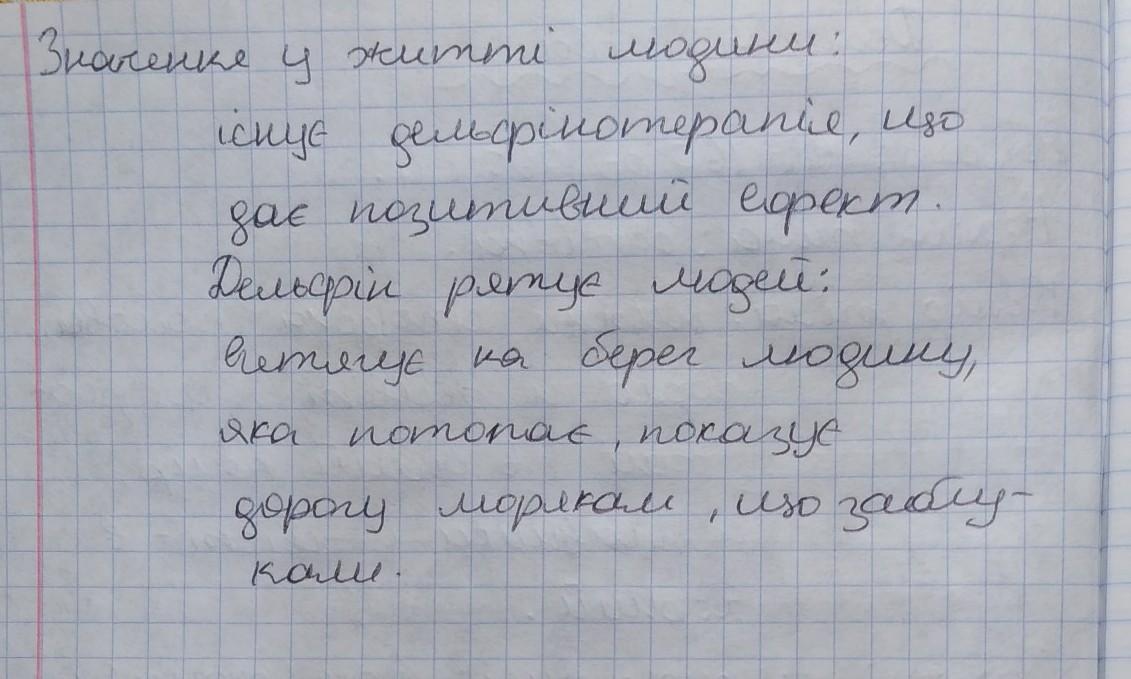 Значення у житті людини:
існує дельфінотерапія, що
дає позитивний ефект.
Дельфін рятує людей:
витягує на берег людину,
яка потопає, показує
дорогу морякам, що заблу-
кали.